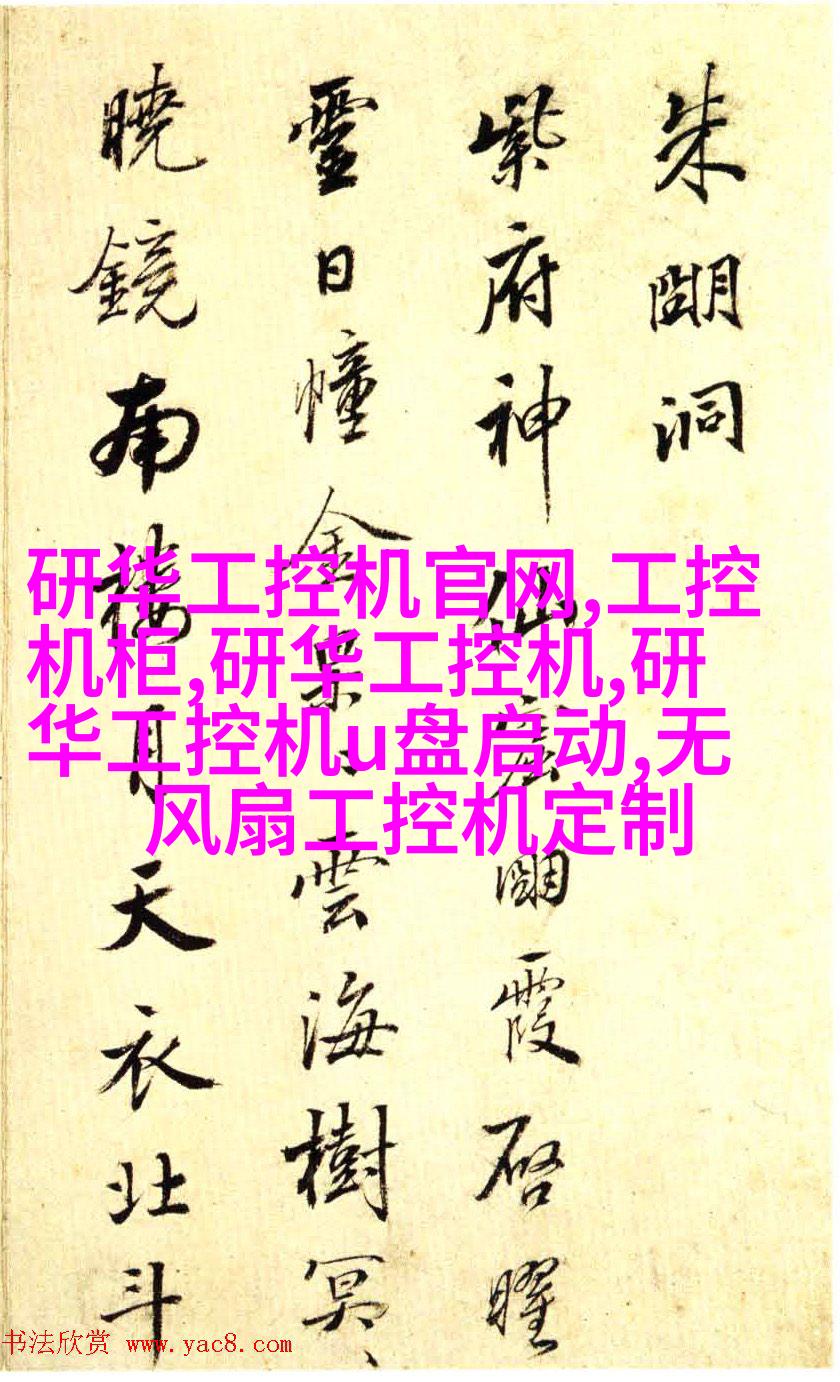 朱朙洞
紫府神仙朙霞啓曜
靈日幢金雲海樹冥〻
曉鏡南樓月天衣北斗
研华工控机官网,工控
机柜,研华工控机,研
华工控机u盘启动,无
风扇工控机定制
书法欣赏 www.yac8.com